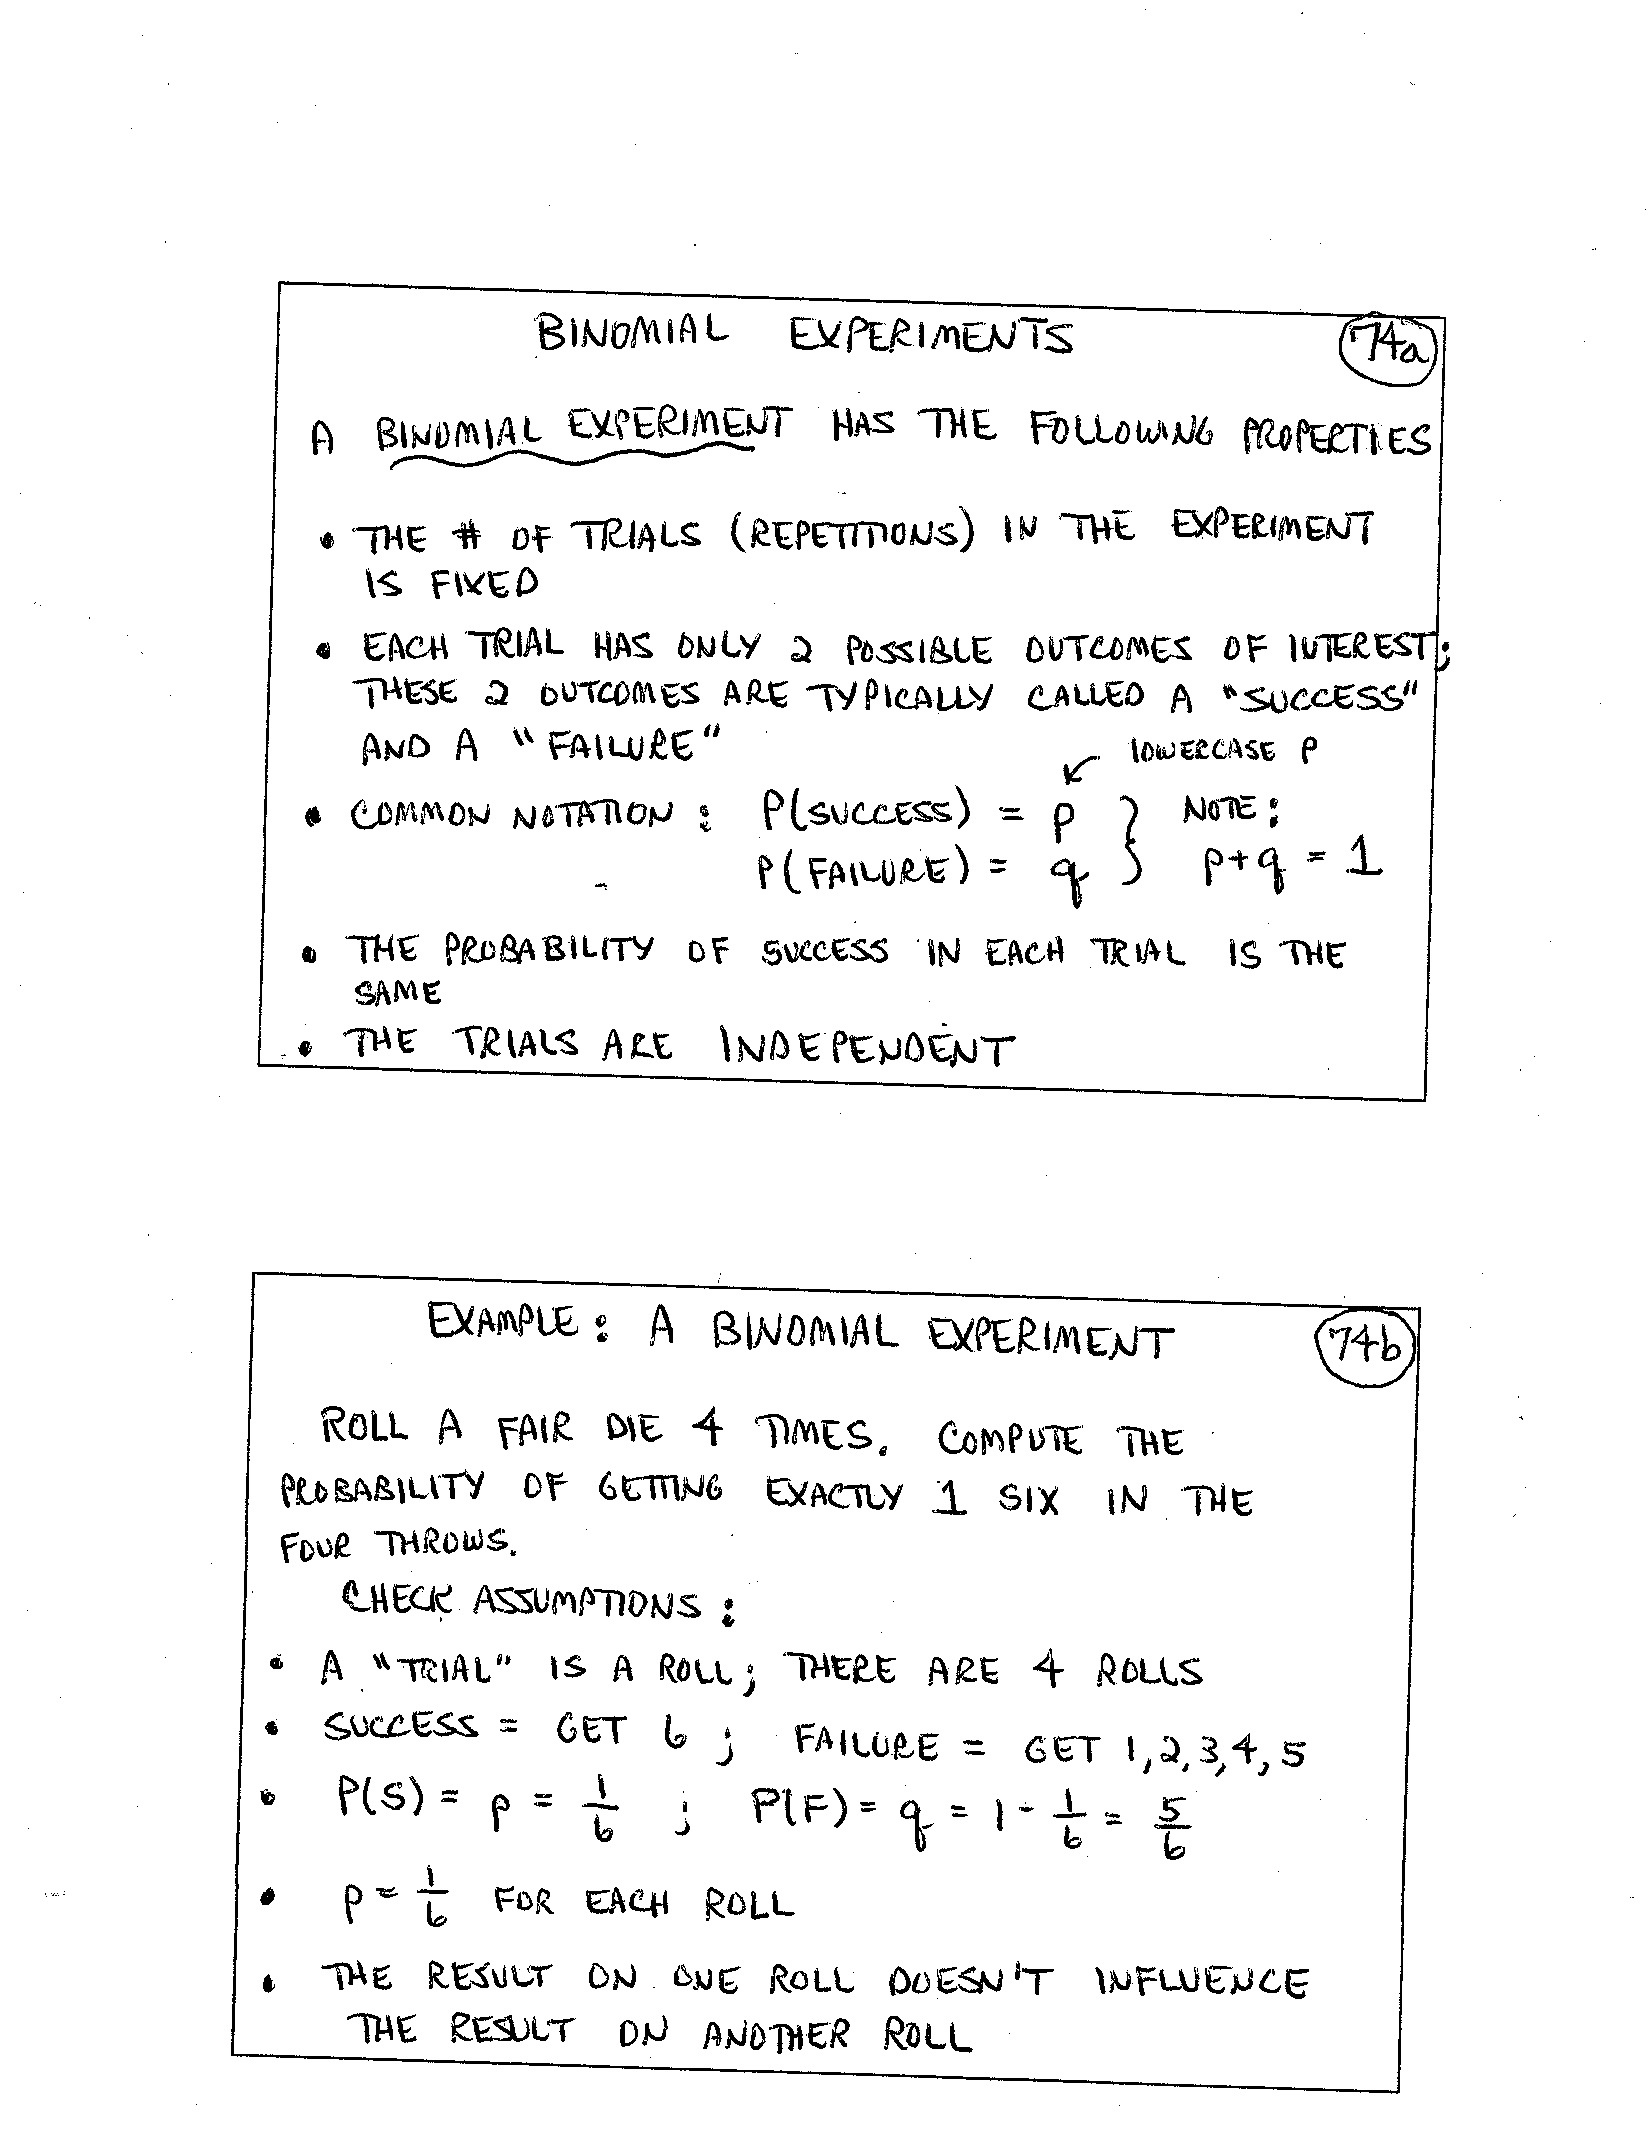 BINOMIAL EXPERIMENTS
74a
A BINOMIAL EXPERIMENT HAS THE FOLLOWING PROPERTIES
• THE # OF TRIALS (REPETITIONS) IN THE EXPERIMENT
IS FIXED
• EACH TRIAL HAS ONLY 2 POSSIBLE OUTCOMES OF INTEREST;
THESE 2 OUTCOMES ARE TYPICALLY CALLED A "SUCCESS"
AND A "FAILURE"
↙ LOWERCASE P
• COMMON NOTATION: P(SUCCESS) = p } NOTE:
P(FAILURE) = q } p+q = 1
• THE PROBABILITY OF SUCCESS IN EACH TRIAL IS THE
SAME
• THE TRIALS ARE INDEPENDENT
EXAMPLE: A BINOMIAL EXPERIMENT
74b
ROLL A FAIR DIE 4 TIMES. COMPUTE THE
PROBABILITY OF GETTING EXACTLY 1 SIX IN THE
FOUR THROWS.
CHECK ASSUMPTIONS:
• A "TRIAL" IS A ROLL; THERE ARE 4 ROLLS
• SUCCESS = GET 6; FAILURE = GET 1,2,3,4,5
• P(S) = p = 1/6 ; P(F) = q = 1 - 1/6 = 5/6
• p = 1/6 FOR EACH ROLL
• THE RESULT ON ONE ROLL DOESN'T INFLUENCE
THE RESULT ON ANOTHER ROLL